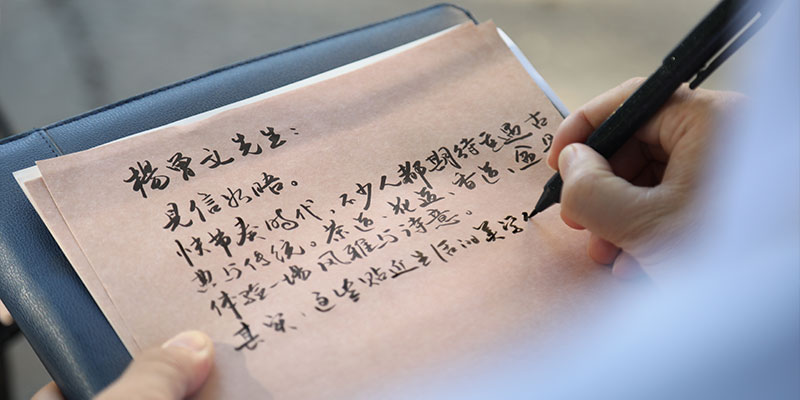 楊曾文先生：
见信如晤。
快节奏时代，不少人都期待重遇古
典与传统。茶道、花艺、香道、
体验一场风雅与诗意。
其实，这些贴近生活的美学